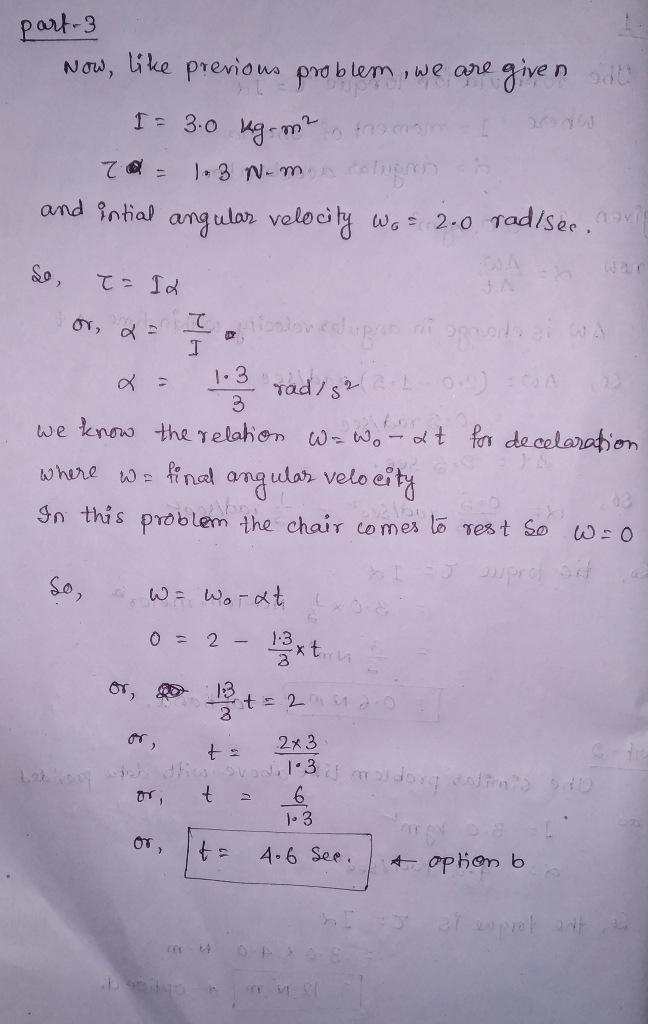 part-3
Now, like previous problem, we are given
I = 3.0 kg-m²
τ = 1.3 N-m
and intial angular velocity ω₀ = 2.0 rad/sec.
So, τ = Iα
or, α = τ/I
α = 1.3/3 rad/s²
we know the relation ω = ω₀ - αt for decelaration
where ω = final angular velocity
In this problem the chair comes to rest So ω = 0
So, ω = ω₀ - αt
0 = 2 - 1.3/3 × t
or, 1.3/3 t = 2
or, t = 2×3/1.3
or, t = 6/1.3
or, t = 4.6 Sec. ← option b